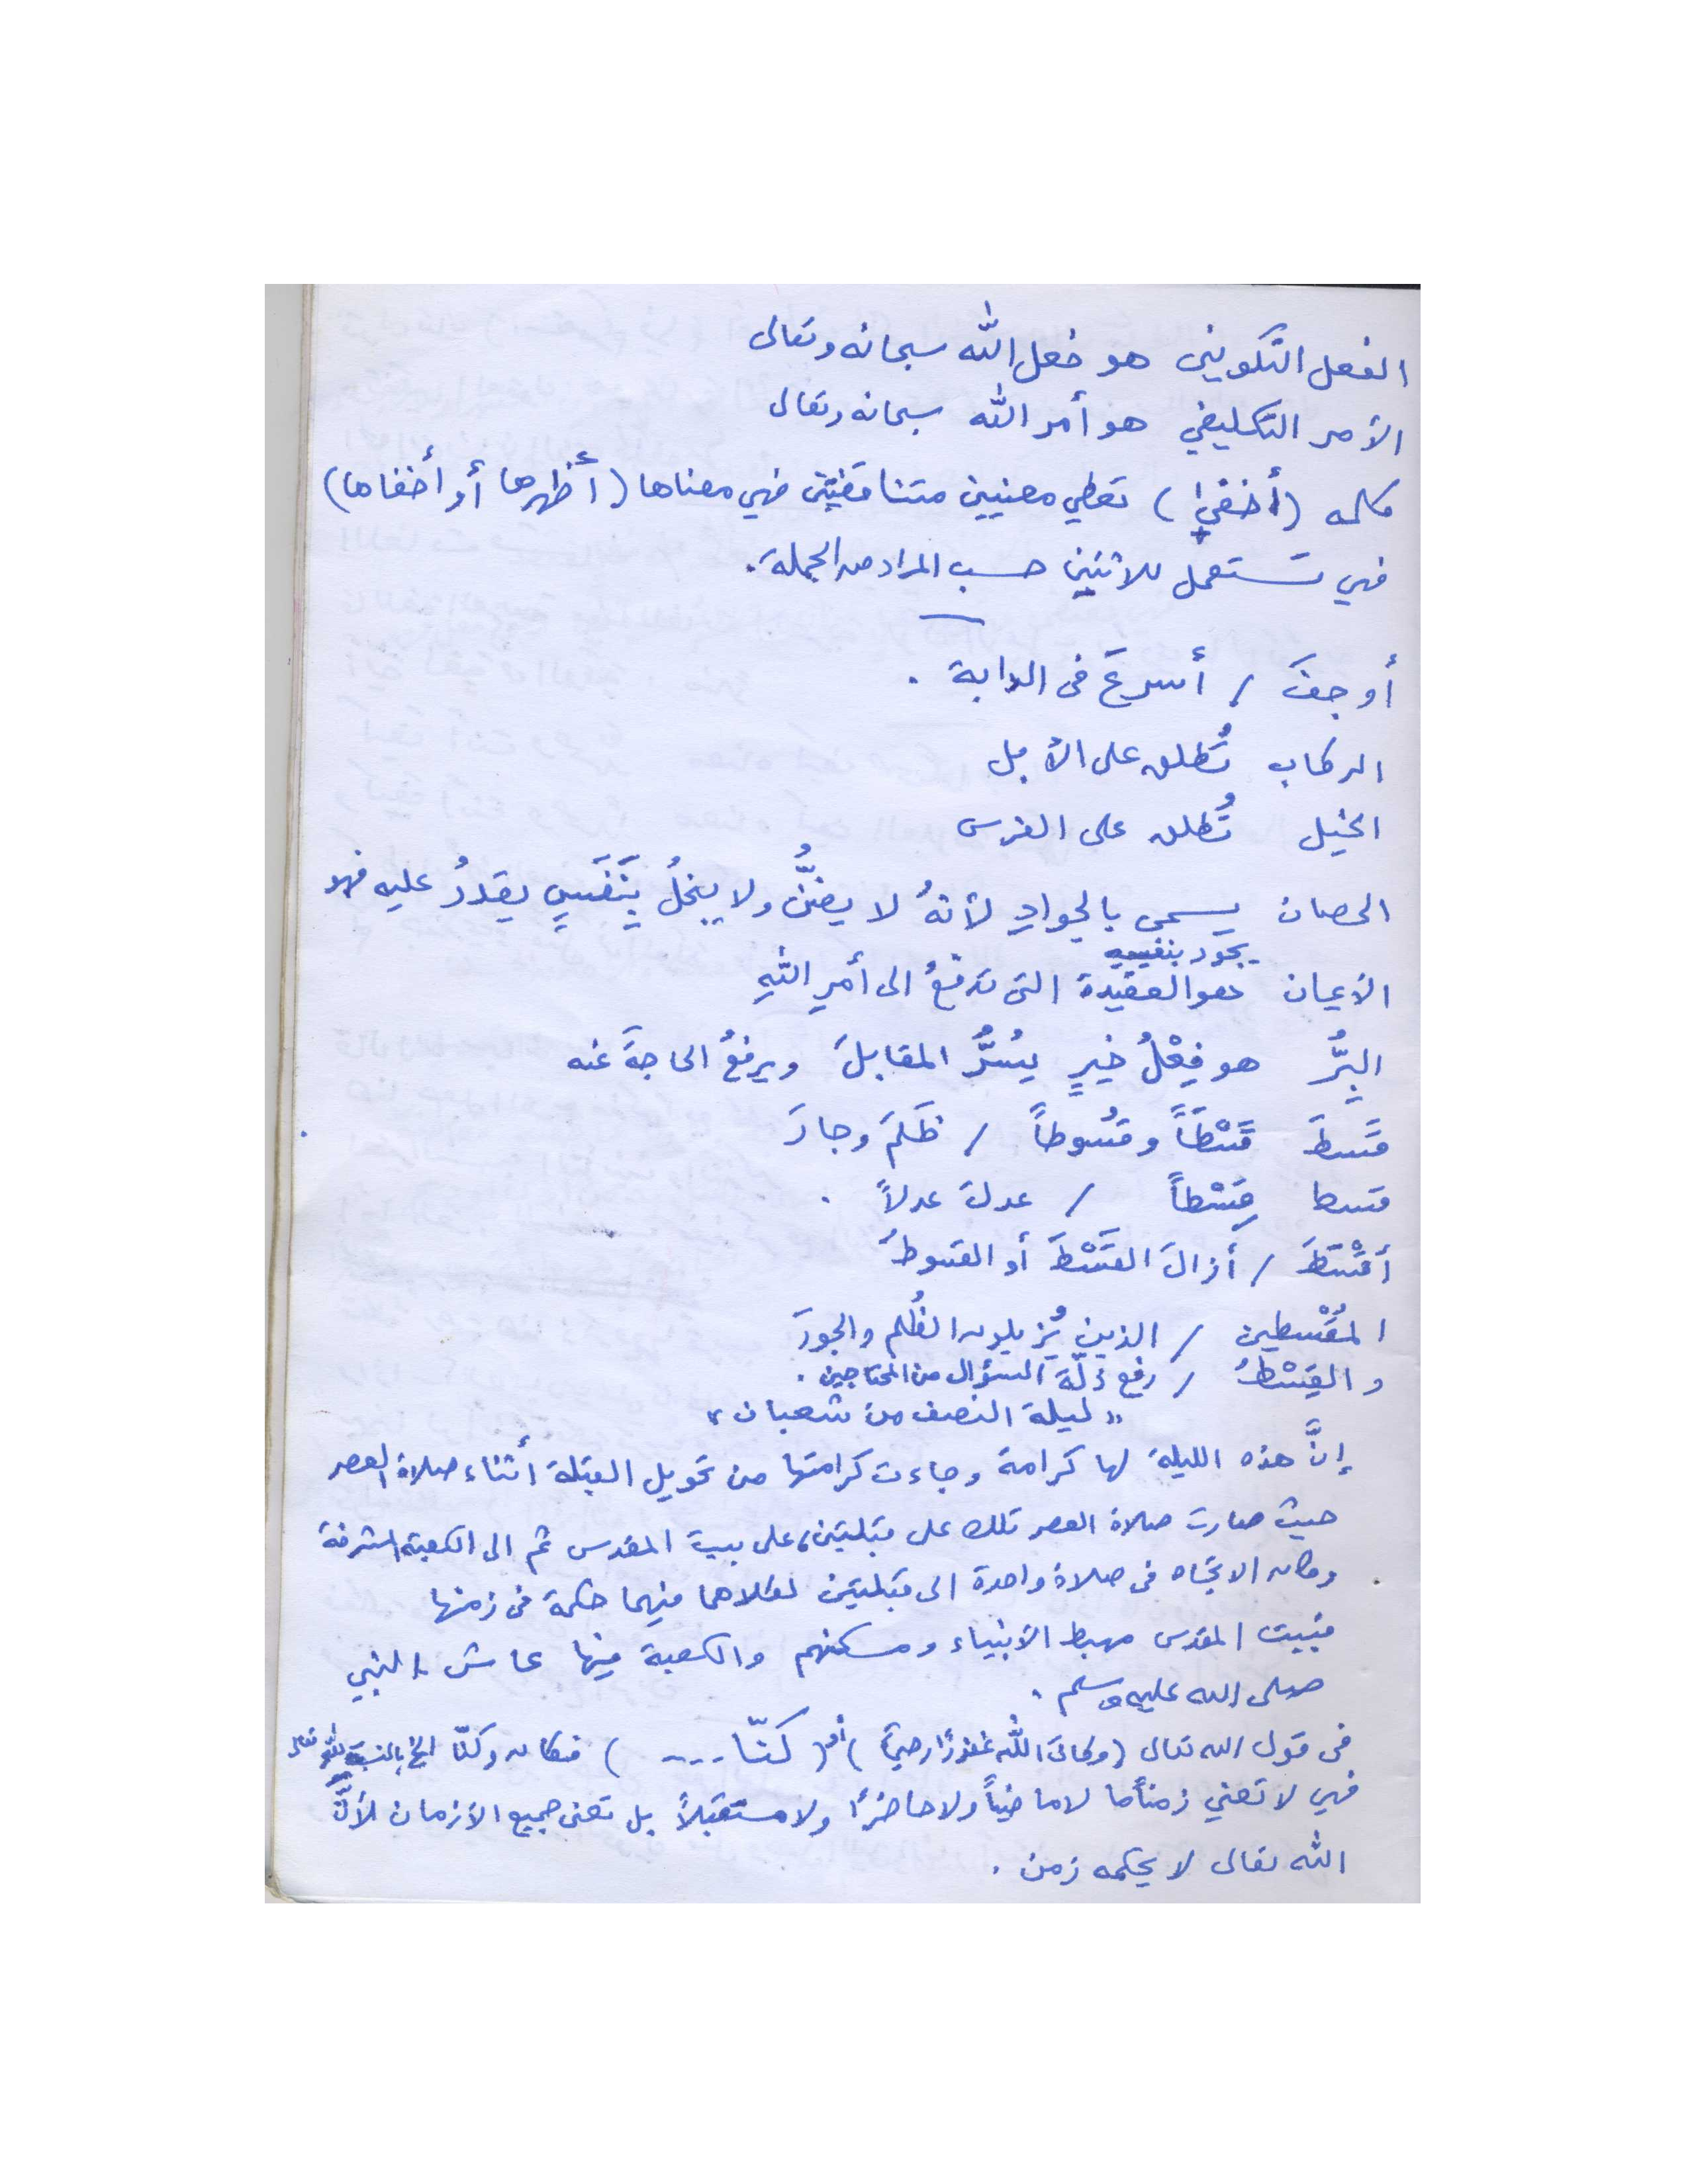 الفعل التكويني هو فعل الله سبحانه وتعالى
الأمر التكليفي هو أمر الله سبحانه وتعالى
كلمه (أخفيها) تعطي معنيين متناقضين فهي معناها (أظهرها أو أخفاها)
فهي تستعمل للاثنين حسب المراد من الجملة.
أوجفَ / أسرعَ في الدابة .
الركاب تُطلق على الأبل
الخيل تُطلق على الفرس
الحصان يسمى بالجوادِ لأنهُ لا يضنُّ ولا يبخلُ بِنَفَسٍ يقدرُ عليه فهو
يجود بنفسِهِ
الأيمان هو العقيدة التي تدفعُ الى أمرِ اللهِ
البِرُّ هو فِعْلُ خيرٍ يسُرُّ المقابلَ ويرفعُ الحاجةَ عنه
قَسَطَ قَسْطَاً وقُسُوطاً / ظَلَمَ وجارَ
قسطا قِسْطاً / عدلَ عدلاً .
أَقْسَطَ / أزالَ القَسْطَ أو القسوطَ
المُقْسطين / الذين يُزيلون الظُلم والجورَ
والقِسْطُ / رفع ذلّةَ السؤال من المحتاجين .
" ليلة النصف من شعبان "
إنَّ هذه الليلة لها كرامة وجاءت كرامتها من تحويل القبلة أثناء صلاة العصر
حيث صارت صلاة العصر تلك على قبلتين، على بيت المقدس ثم الى الكعبة المشرفة
وكان الاتجاه في صلاة واحدة الى قبلتين لكلاهما فيهما حكمة في زمنها
فبيت المقدس مهبط الأنبياء ومسكنهم والكعبة فيها عاش النبي
صلى الله عليه وسلم .
في قول الله تعالى (وكانَ اللهُ غفورًا رحيمًا) أو (كنّا ....) فكان وكنّا الخ بالنسبة لله تعالى
فهي لا تعني زمنًا ما لا ماضيًا ولا حاضرًا ولا مستقبلاً بل تعني جميع الأزمان لأنَّ
الله تعالى لا يحكمه زمن .